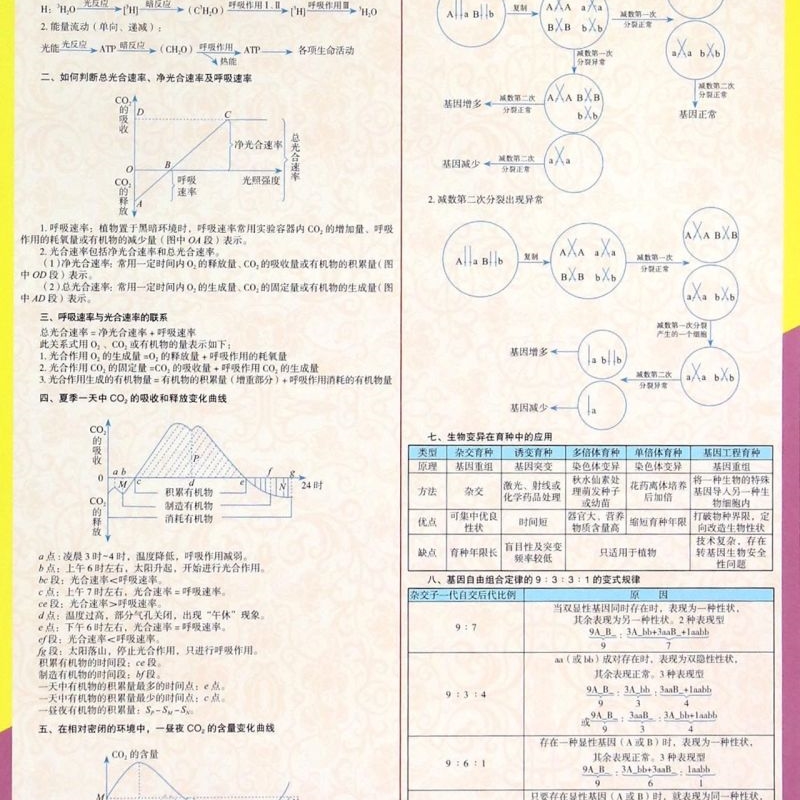 H: ³H₂O 光反应 [³H] 暗反应 (C³H₂O) 呼吸作用Ⅰ、Ⅱ [³H] 呼吸作用Ⅲ ³H₂O
2. 能量流动（单向、递减）：
光能 光反应 ATP 暗反应 (CH₂O) 呼吸作用 ATP 各项生命活动
热能
二、如何判断总光合速率、净光合速率及呼吸速率
CO₂的吸收
D
C
净光合速率
总光合速率
O
B
呼吸速率
光照强度
CO₂的释放
A
1. 呼吸速率：植物置于黑暗环境时，呼吸速率常用实验容器内 CO₂ 的增加量、呼吸
作用的耗氧量或有机物的减少量（图中 OA 段）表示。
2. 光合速率包括净光合速率和总光合速率。
（1）净光合速率：常用一定时间内 O₂ 的释放量、CO₂ 的吸收量或有机物的积累量（图
中 OD 段）表示。
（2）总光合速率：常用一定时间内 O₂ 的生成量、CO₂ 的固定量或有机物的生成量（图
中 AD 段）表示。
三、呼吸速率与光合速率的联系
总光合速率 = 净光合速率 + 呼吸速率
此关系式用 O₂ 、CO₂ 或有机物的量表示如下：
1. 光合作用 O₂ 的生成量 =O₂ 的释放量 + 呼吸作用的耗氧量
2. 光合作用 CO₂ 的固定量 =CO₂ 的吸收量 + 呼吸作用 CO₂ 的生成量
3. 光合作用生成的有机物量 = 有机物的积累量（增重部分）+ 呼吸作用消耗的有机物量
四、夏季一天中 CO₂ 的吸收和释放变化曲线
CO₂的吸收
d
P
a b
0
M
c
e
f
g
N
24 时
积累有机物
制造有机物
消耗有机物
CO₂的释放
a 点：凌晨 3 时~4 时，温度降低，呼吸作用减弱。
b 点：上午 6 时左右，太阳升起，开始进行光合作用。
bc 段：光合速率＜呼吸速率。
c 点：上午 7 时左右，光合速率 = 呼吸速率。
ce 段：光合速率＞呼吸速率。
d 点：温度过高，部分气孔关闭，出现“午休”现象。
e 点：下午 6 时左右，光合速率 = 呼吸速率。
ef 段：光合速率＜呼吸速率。
fg 段：太阳落山，停止光合作用，只进行呼吸作用。
积累有机物的时间段：ce 段。
制造有机物的时间段：bf 段。
一天中有机物的积累量最多的时间点：e 点。
一天中有机物的积累量最少的时间点：c 点。
一昼夜有机物的积累量：Sₚ−Sₘ−Sɴ。
五、在相对密闭的环境中，一昼夜 CO₂ 的含量变化曲线
CO₂ 的含量
M
A a B b
复制
A A a a
B B b b
减数第一次分裂正常
a a b b
减数第一次分裂异常
减数第二次分裂正常
基因正常
A A B B
b b
减数第二次分裂正常
基因增多
a a
减数第二次分裂正常
基因减少
2. 减数第二次分裂出现异常
A a B b
复制
A A a a
B B b b
减数第一次分裂正常
A A B B
a a b b
减数第一次分裂产生的一个细胞
a a b b
减数第二次分裂异常
a b b
基因增多
a
基因减少
七、生物变异在育种中的应用
类型 杂交育种 诱变育种 多倍体育种 单倍体育种 基因工程育种
原理 基因重组 基因突变 染色体变异 染色体变异 基因重组
方法 杂交 激光、射线或化学药品处理 秋水仙素处理萌发种子或幼苗 花药离体培养后加倍 将一种生物的特殊基因导入另一种生物细胞内
优点 可集中优良性状 时间短 器官大、营养物质含量高 缩短育种年限 打破物种界限，定向改造生物性状
缺点 育种年限长 盲目性及突变频率较低 只适用于植物 技术复杂，存在转基因生物安全性问题
八、基因自由组合定律的 9：3：3：1 的变式规律
杂交子一代自交后代比例 原 因
9：7
当双显性基因同时存在时，表现为一种性状，
其余表现为另一种性状。2 种表现型
9A_B_ : 3A_bb+3aaB_+1aabb
9 7
9：3：4
aa（或 bb）成对存在时，表现为双隐性性状，
其余表现正常。3 种表现型
9A_B_ : 3A_bb : 3aaB_+1aabb
9 3 4
或 9A_B_ : 3aaB_ : 3A_bb+1aabb
9 3 4
9：6：1
存在一种显性基因（A 或 B）时，表现为一种性状，
其余表现正常。3 种表现型
9A_B_ : 3A_bb+3aaB_ : 1aabb
9 6 1
只要存在显性基因（A 或 B）时，就表现为同一种性状，